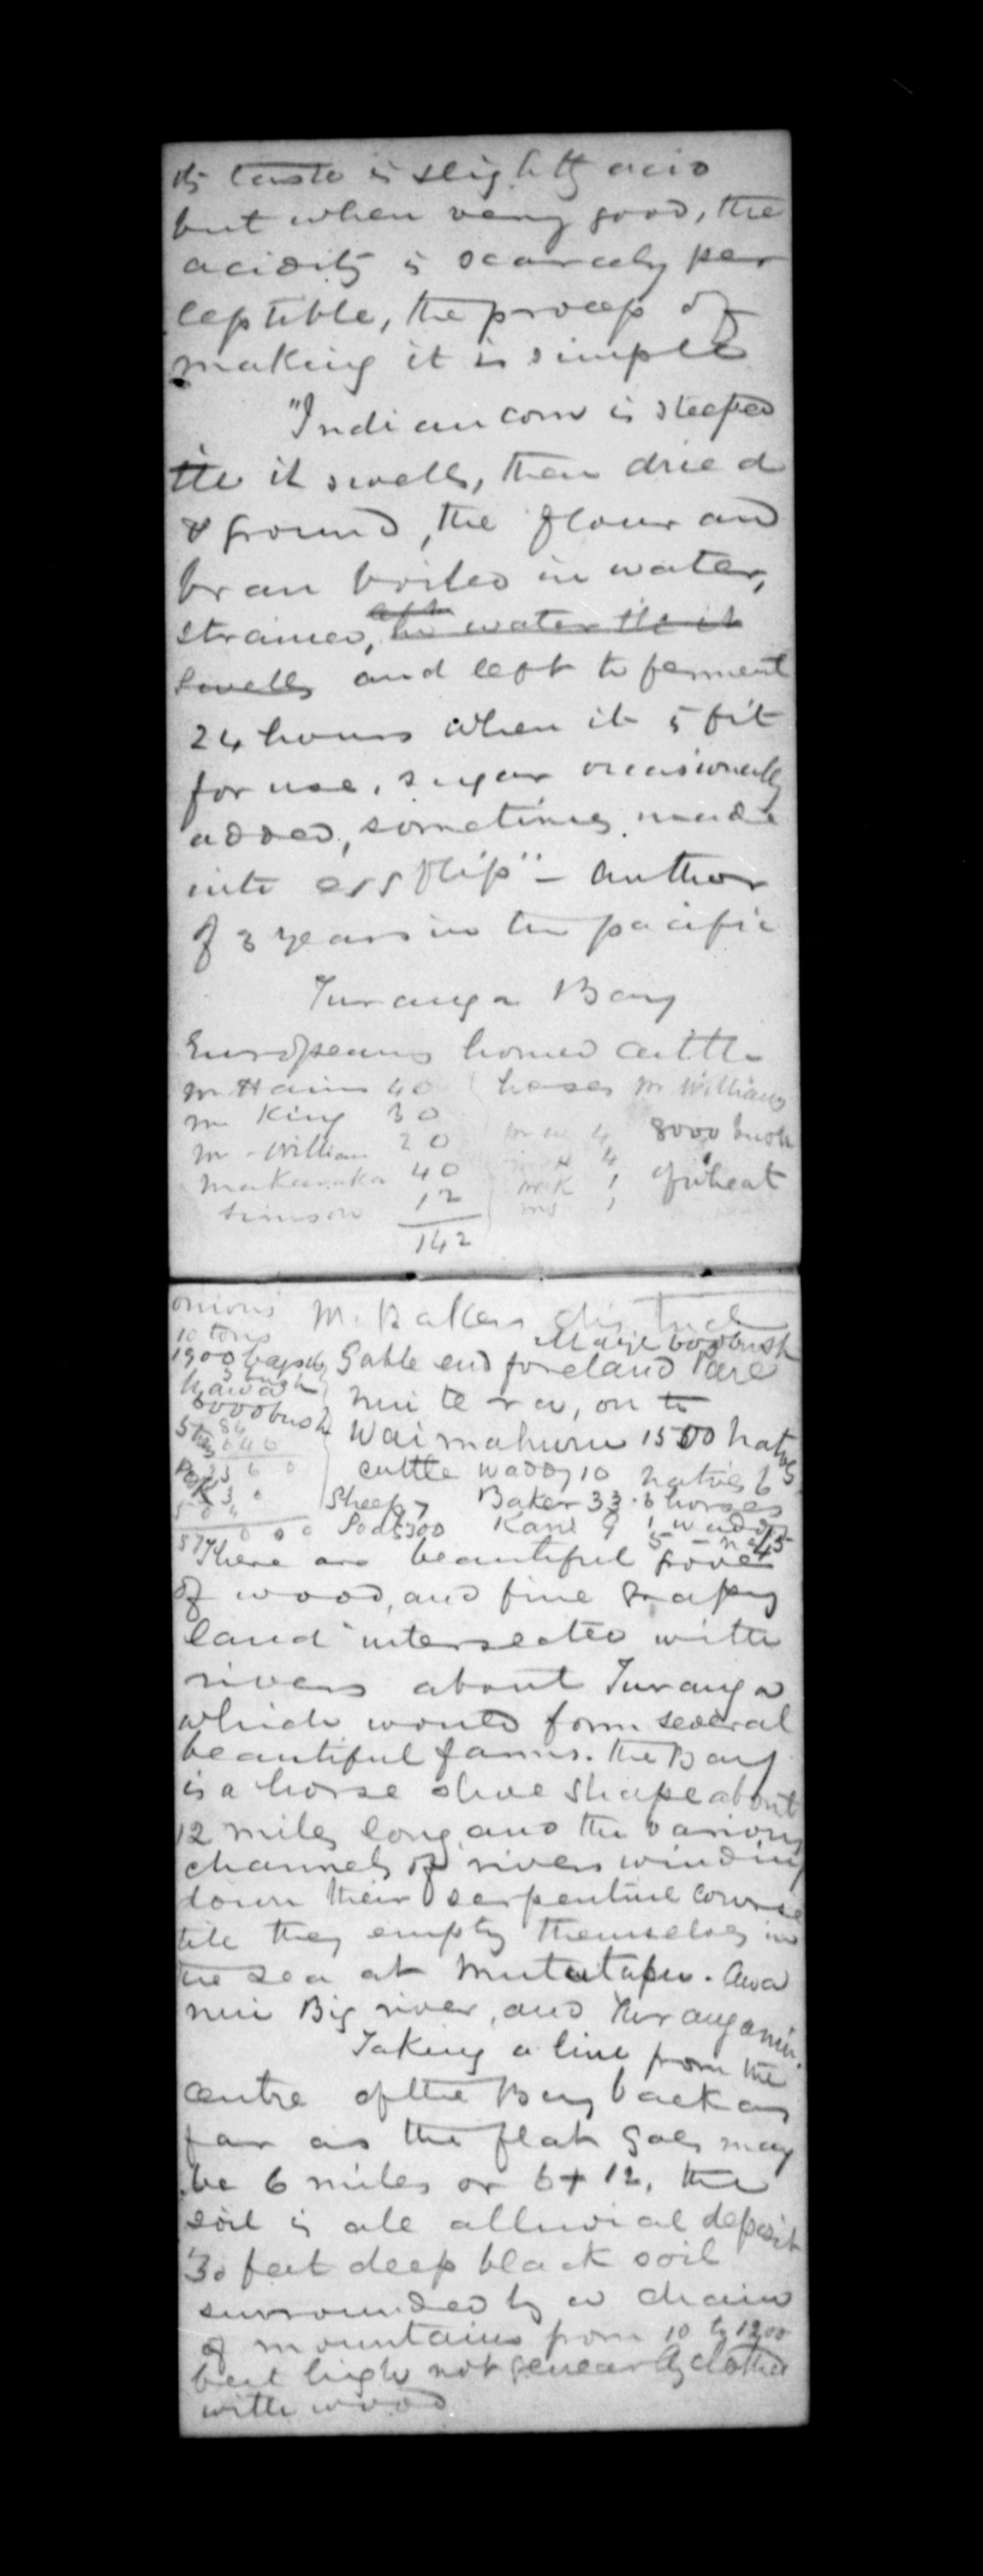 its taste is slightly acid
but when very good, the
acidity is scarcely per
ceptible, the process of
making it is simple
"Indian corn is steeped
till it swells, then dried
& ground, the flour and
bran boiled in water,
strained, in water till it
swells and left to ferment
24 hours when it is fit
for use, sugar occasionally
added, sometimes made
into egg flip" - author
of 3 years in the pacific
Turanga Bay
Europeans horned cattle
Mr Harris 40 horses Mr Williams
Mr King 30
Mr William 20 Mr W 4 8000 bush
Makaraka 40 Mr H 4 of wheat
Simson 12 Mr K 1
142 Mr S 1
onions Mr Bakers district
10 tons Maize 600 bush
1900 Gable end foreland Pare
nui te ra, on to
6000 bush Waimahuru 1500 natives
cattle Waddy 10 natives 6
Sheep 7 Baker 33. 6 horses
300 Kane 9 1 Waddy
There are beautiful groves
of wood, and fine grassy
land intersected with
rivers about Turanga
which would form several
beautiful farms. the Bay
is a horse shoe shape about
12 miles long, and the various
channels of rivers winding
down their serpentine course
till they empty themselves in
the sea at Mututapu. Awa
nui Big river, and Turanganui.
Taking a line from the
centre of the Bay back as
far as the flat goes may
be 6 miles or 6 + 12, the
soil is all alluvial deposit
30 feet deep black soil
surrounded by a chain
of mountains from 10 to 1200
feet high not generally clothed
with wood